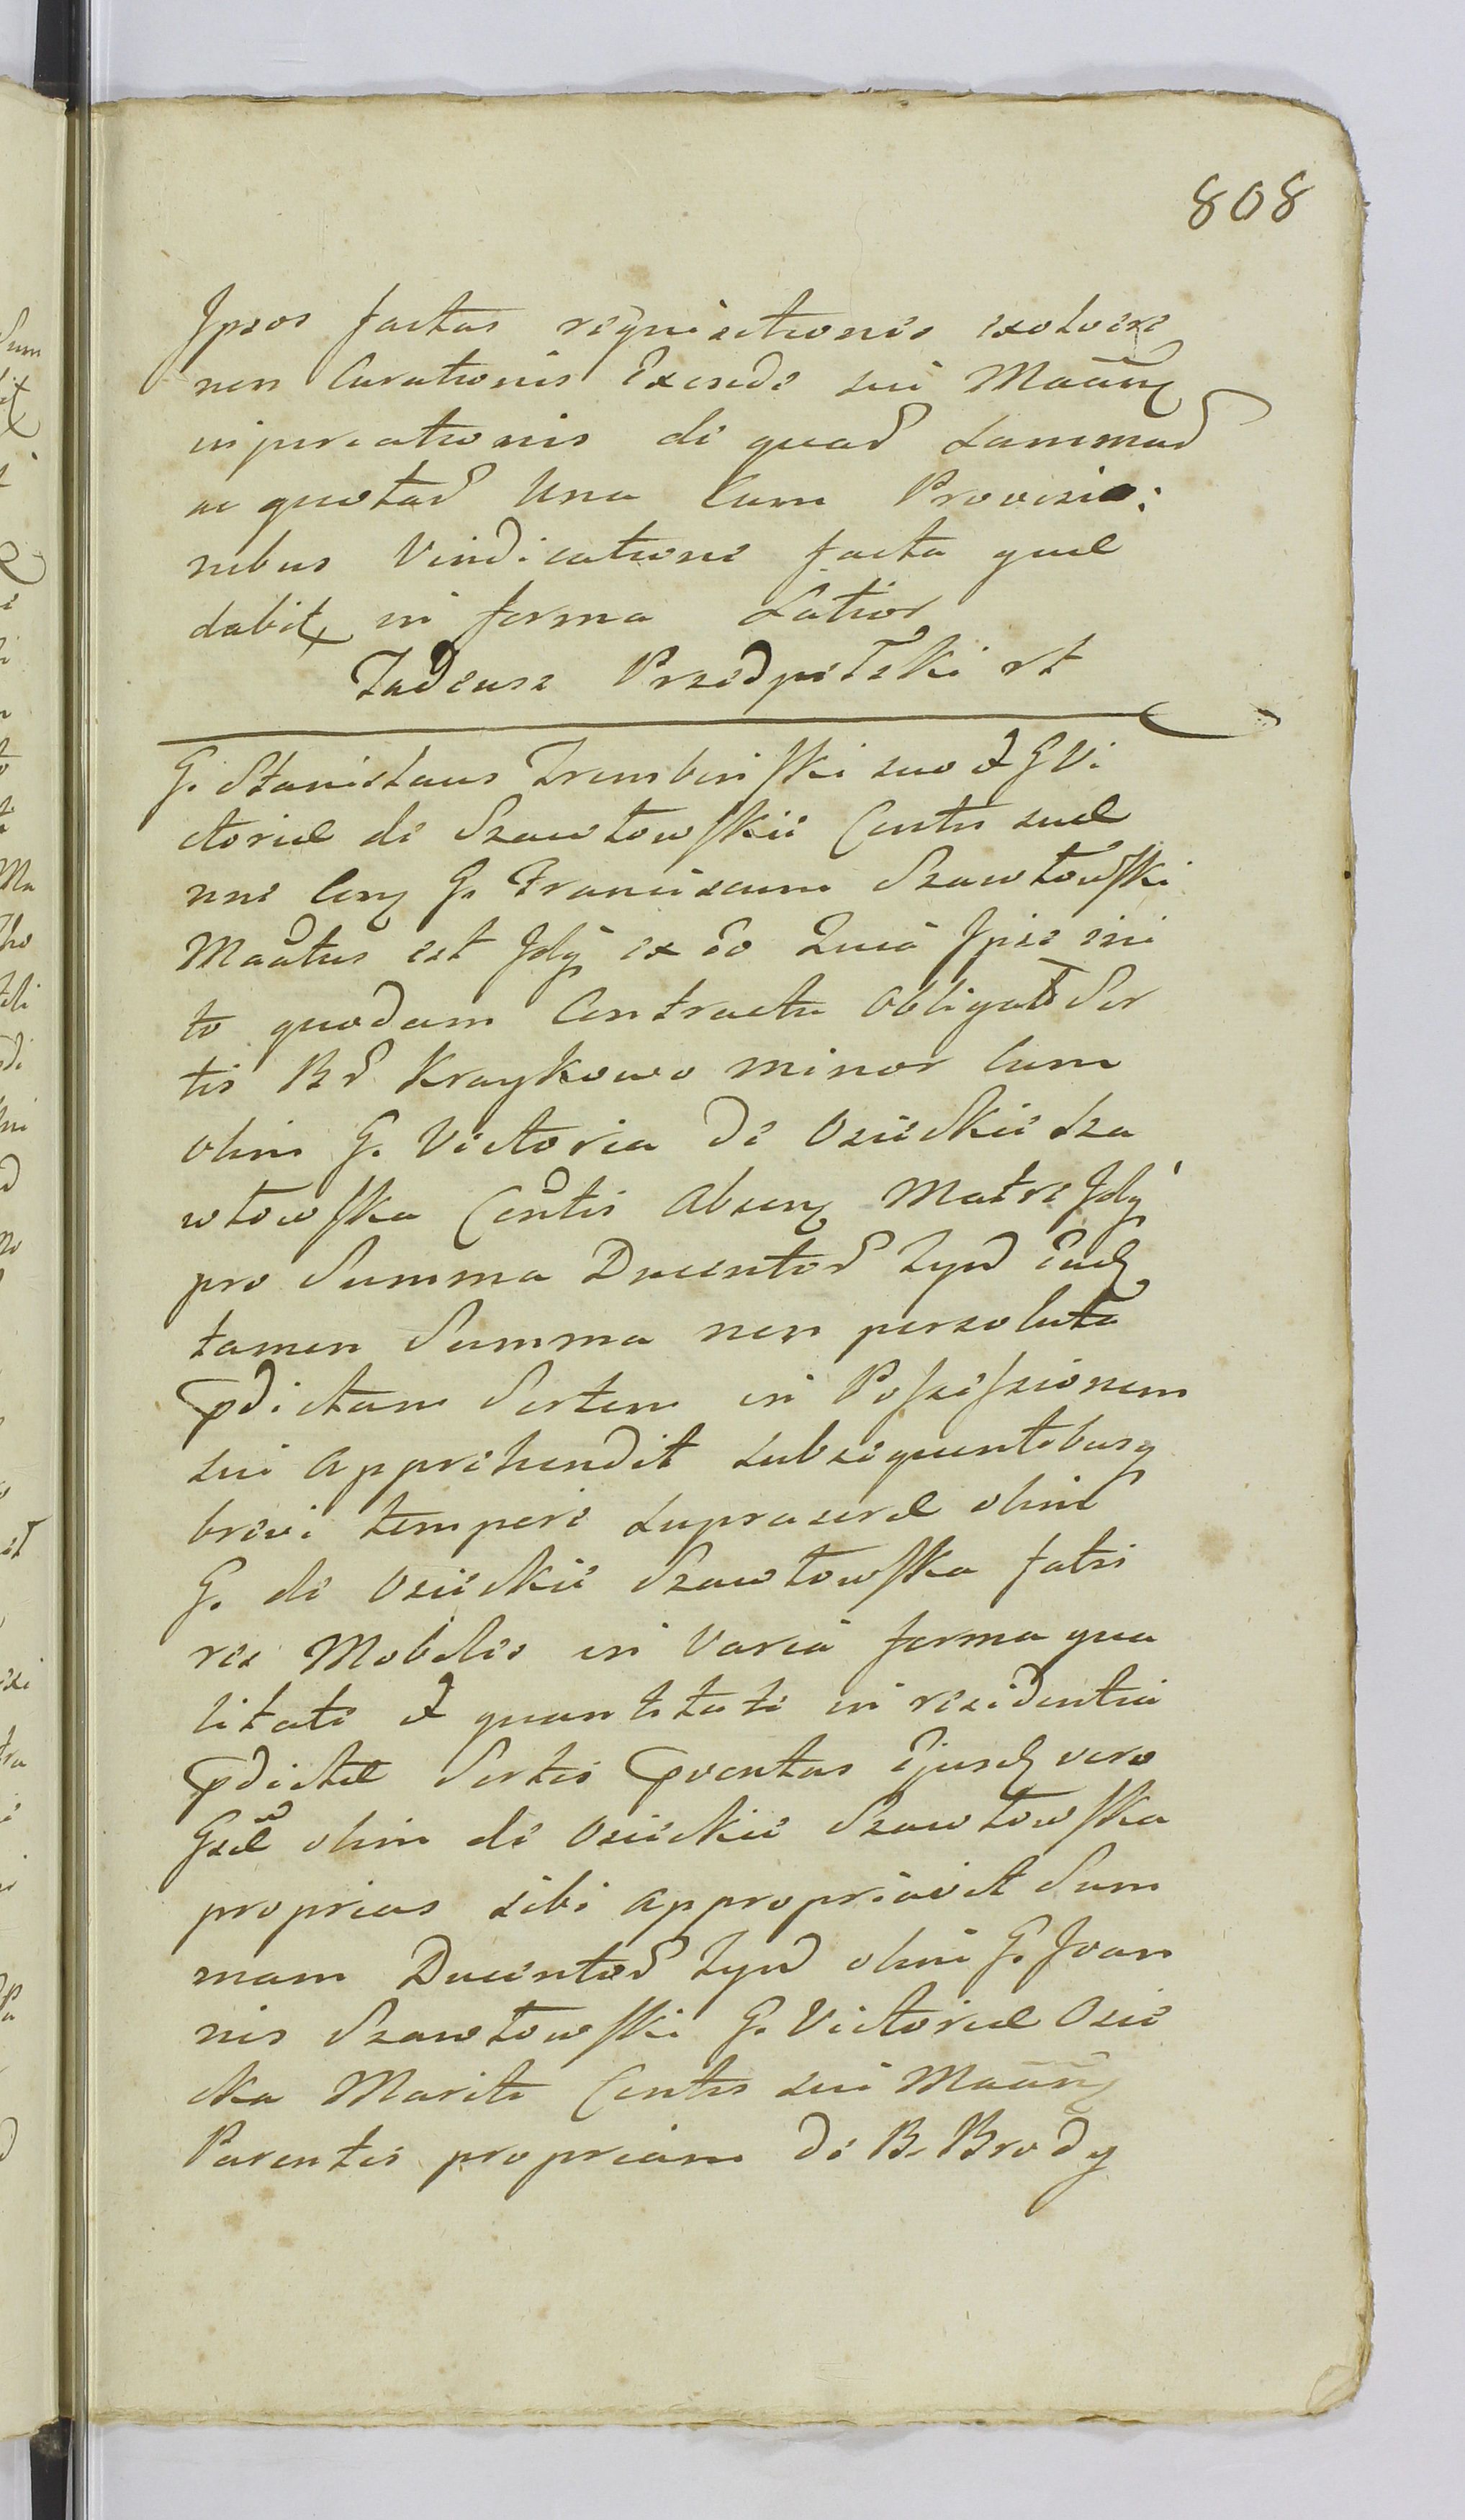 808
Ipsos factas requisitiones exolvere
non Curationis Excude sui Maãnq
inprecationis de quad Summad
ac quotad Una Cum Provisio:
nibus Vindicatione facta quæ
dabit in forma Latior
Tadeusz Przedpełski rt
G. Stanislaus Trembinski suo et G Vi
ctoriæ de Szawłowskie Contis suæ
nne Cenq G. Franciscum Szawłowski
Maatus est Jdq ex Eo Quia Ipse ini
to quodam Contractu obligat Sor
tis Bd Kraykowo minor Cum
olim G. Victoria de Osieckie Sza
włowska Contis absenq Matre Jdq
pro Summa Ducentod Tynd Eadq
tamen Summa non persoluta
pdictam Sortem in Possessionem
sui apprehendit subsequentibusq
brevi tempore supraseræ olim
G. de Osieckie Szawłowska fatis
res Mobiles in Varia forma qua
litate et quantitate in residentia
pdictæ Sortis pventas Ejusdq vero
Gsæ olim de Osieckie Szawłowska
proprias sibi appropriavit Sum
mam Ducentod Tynd olim G. Joan
nis Szawłowski G. Victoriæ Osie
cka Mariti Contis sui Maãnq
Parentis propriam de B. Brody